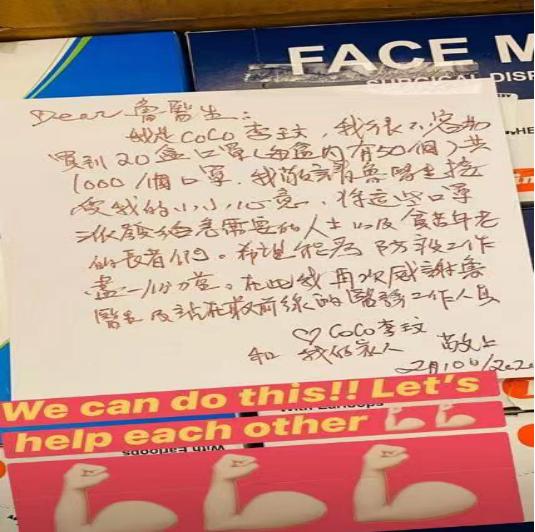 FACE M
SURGICAL DISP
HE
Dear 魯醫生:
我是CoCo李玟,我很不容易
買到20盒口罩(每盒內有50個)共
1000個口罩,我敬請魯醫生接
受我的小小心意,將這些口罩
派發給急需要的人士以及貧苦年老
的長者們。希望能為防疫工作
盡一份力量。在此我再次感謝魯
醫生及站在最前線的醫務工作人員
♡ CoCo李玟
和 我的家人 敬上
2月10日/2020
We can do this!! Let's
help each other
With Earloops
With Earloops